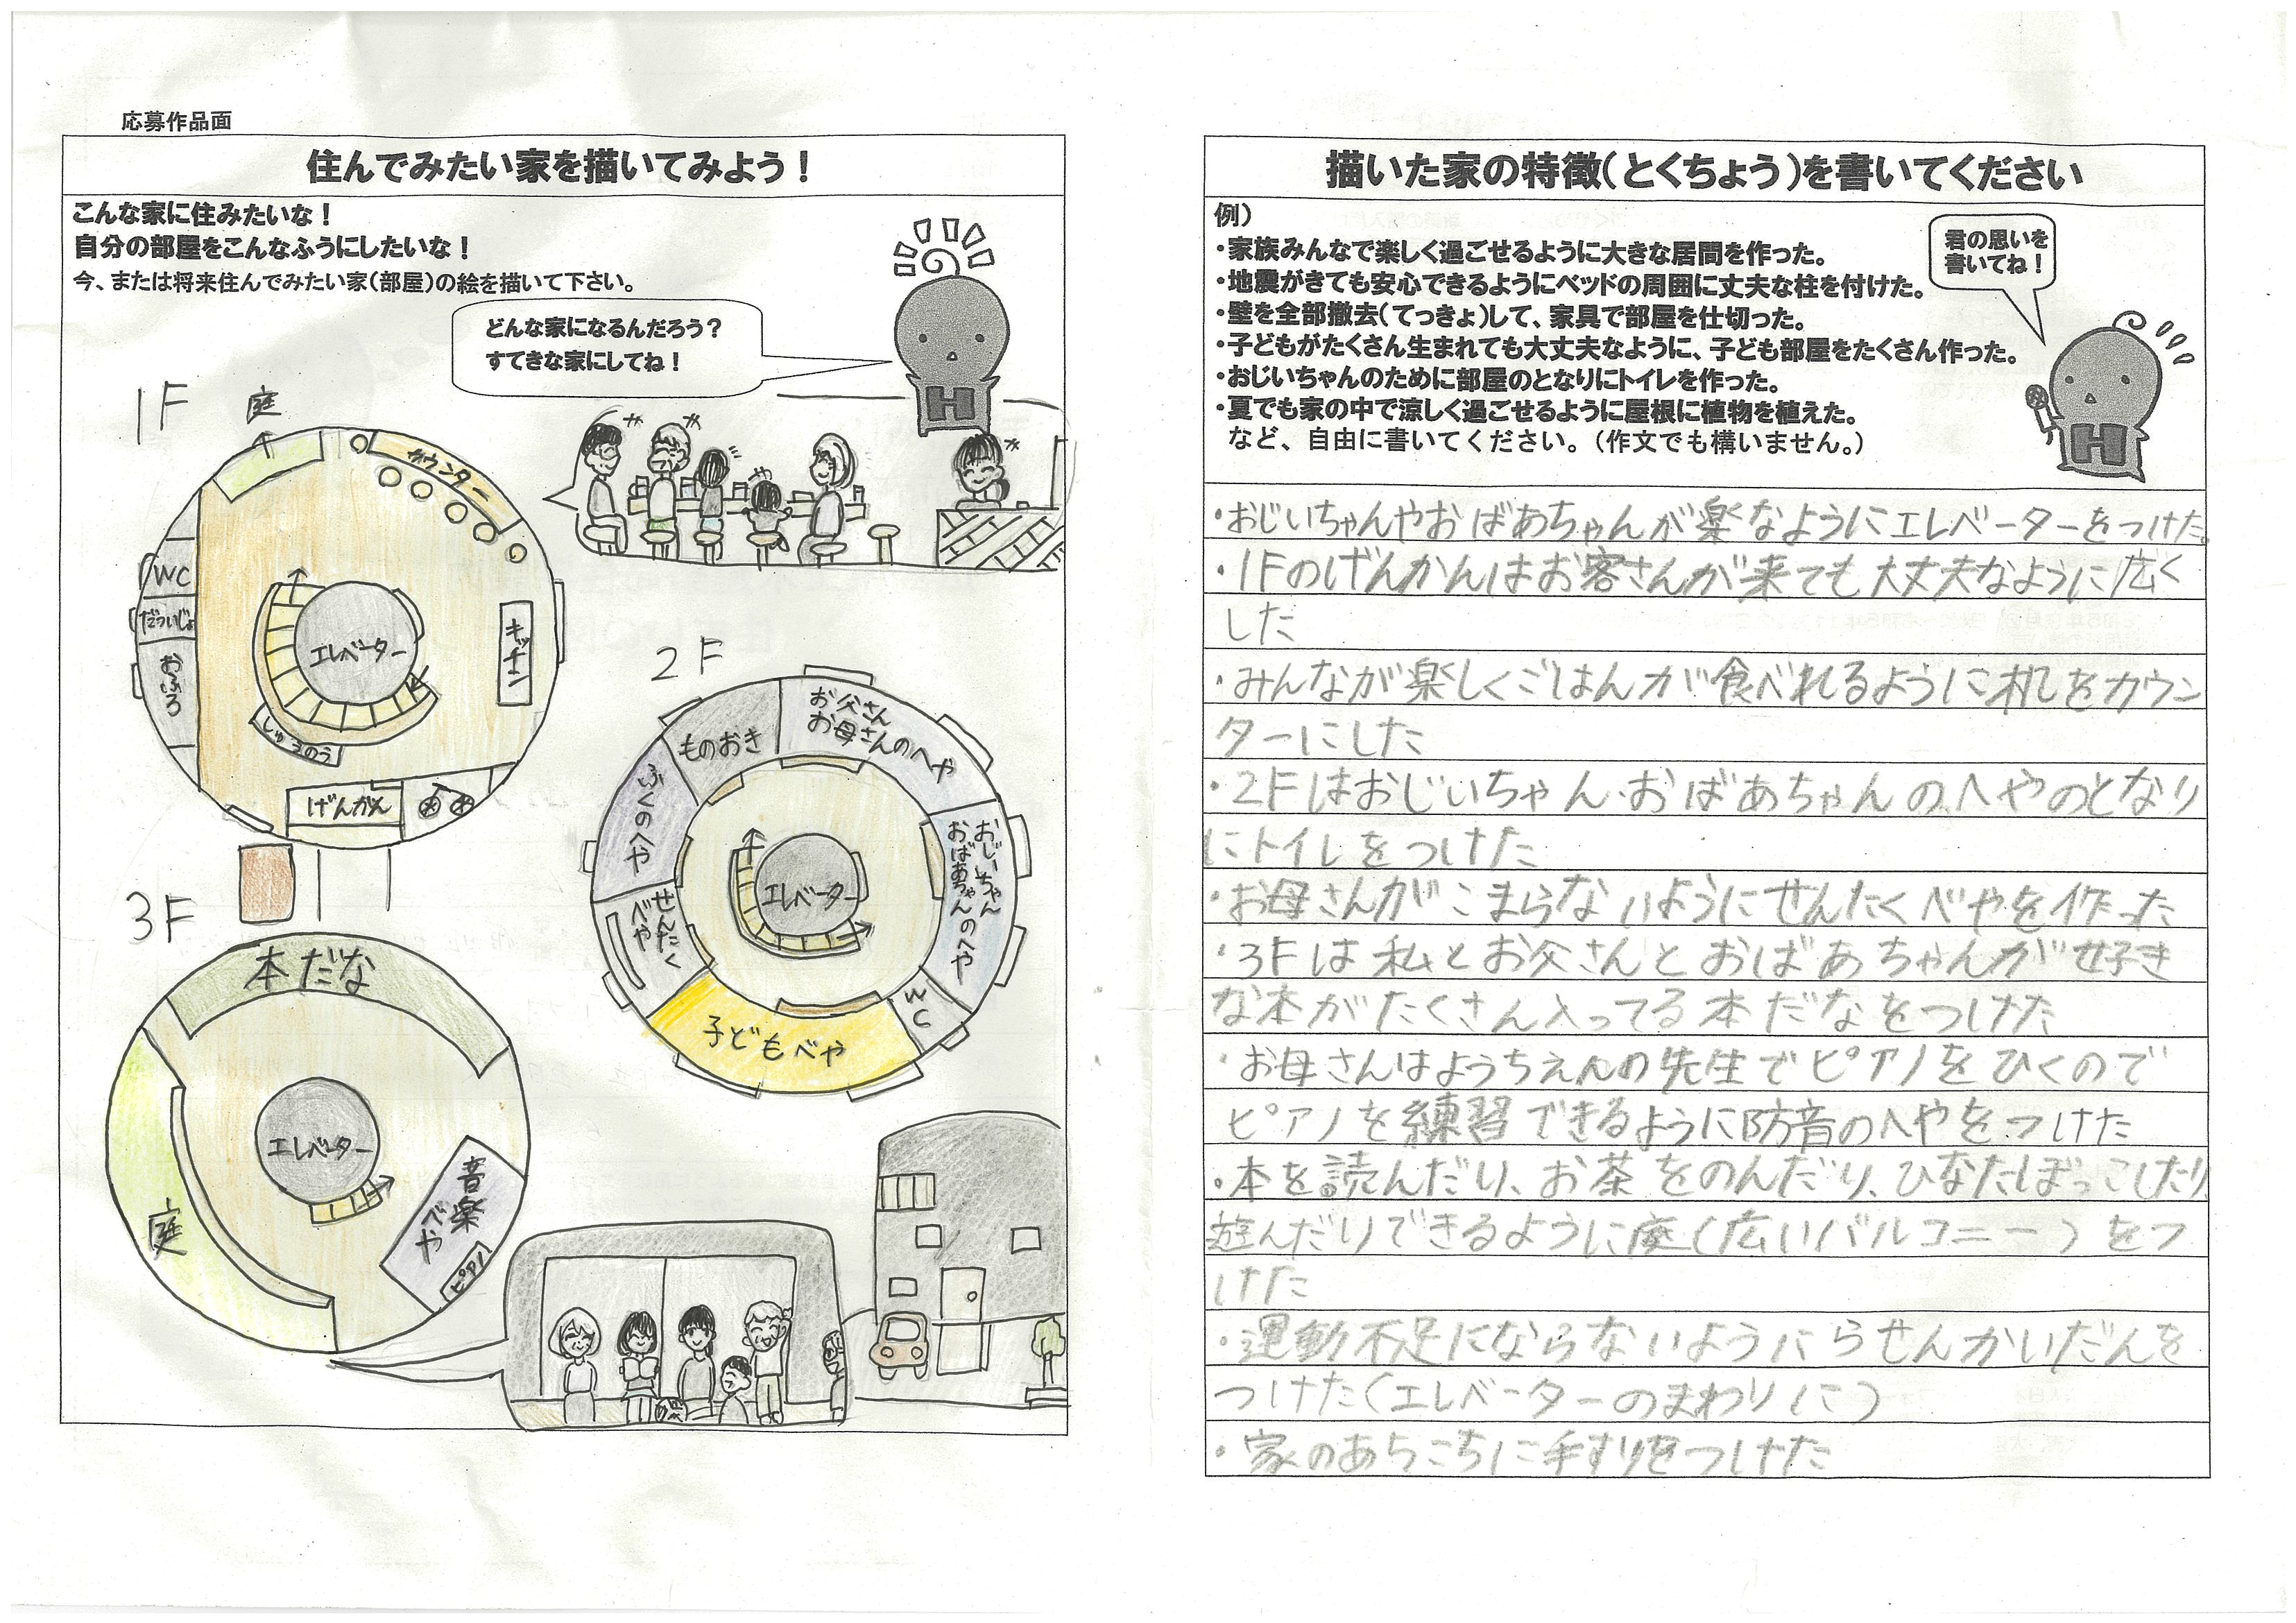 応募作品面
住んでみたい家を描いてみよう！
こんな家に住みたいな！
自分の部屋をこんなふうにしたいな！
今、または将来住んでみたい家（部屋）の絵を描いて下さい。
どんな家になるんだろう？
すてきな家にしてね！
1F
庭
カウンター
WC
だついじょ
おふろ
エレベーター
キッチン
しゅうのう
げんかん
2F
ものおき
お父さん
お母さんのへや
ふくのへや
おじいちゃん
おばあちゃんのへや
エレベーター
せんたく
べや
WC
子どもべや
3F
本だな
エレベーター
庭
音楽
べや
ピアノ
描いた家の特徴（とくちょう）を書いてください
例）
・家族みんなで楽しく過ごせるように大きな居間を作った。
・地震がきても安心できるようにベッドの周囲に丈夫な柱を付けた。
・壁を全部撤去（てっきょ）して、家具で部屋を仕切った。
・子どもがたくさん生まれても大丈夫なように、子ども部屋をたくさん作った。
・おじいちゃんのために部屋のとなりにトイレを作った。
・夏でも家の中で涼しく過ごせるように屋根に植物を植えた。
など、自由に書いてください。（作文でも構いません。）
君の思いを
書いてね！
H
H
・おじいちゃんやおばあちゃんが楽なようにエレベーターをつけた。
・1Fのげんかんはお客さんが来ても大丈夫なように広く
した
・みんなが楽しくごはんが食べれるように机をカウン
ターにした
・2Fはおじいちゃん・おばあちゃんのへやのとなり
にトイレをつけた
・お母さんがこまらないようにせんたくべやを作った
・3Fは私とお父さんとおばあちゃんが好き
な本がたくさん入ってる本だなをつけた
・お母さんはようちえんの先生でピアノをひくので
ピアノを練習できるように防音のへやをつけた
・本を読んだり、お茶をのんだり、ひなたぼっこしたり
遊んだりできるように庭（広いバルコニー）をつ
けた
・運動不足にならないようにらせんかいだんを
つけた（エレベーターのまわりに）
・家のあちこちに手すりをつけた